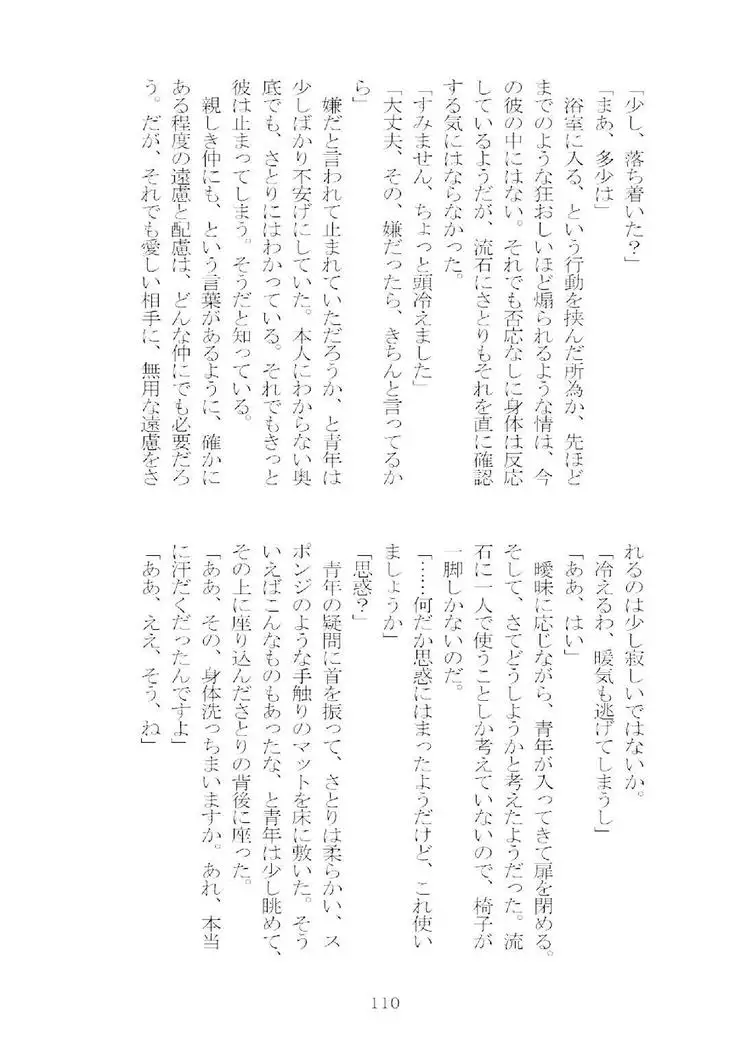 「少し、落ち着いた？」
「まあ、多少は」
　浴室に入る、という行動を挟んだ所為か、先ほど
までのような狂おしいほど煽られるような情は、今
の彼の中にはない。それでも否応なしに身体は反応
しているようだが、流石にさとりもそれを直に確認
する気にはならなかった。
「すみません、ちょっと頭冷えました」
「大丈夫、その、嫌だったら、きちんと言ってるか
ら」
　嫌だと言われて止まれていただろうか、と青年は
少しばかり不安げにしていた。本人にわからない奥
底でも、さとりにはわかっている。それでもきっと
彼は止まってしまう。そうだと知っている。
　親しき仲にも、という言葉があるように、確かに
ある程度の遠慮と配慮は、どんな仲にでも必要だろ
う。だが、それでも愛しい相手に、無用な遠慮をさ
れるのは少し寂しいではないか。
「冷えるわ、暖気も逃げてしまうし」
「ああ、はい」
　曖昧に応じながら、青年が入ってきて扉を閉める。
そして、さてどうしようかと考えたようだった。流
石に一人で使うことしか考えていないので、椅子が
一脚しかないのだ。
「……何だか思惑にはまったようだけど、これ使い
ましょうか」
「思惑？」
　青年の疑問に首を振って、さとりは柔らかい、ス
ポンジのような手触りのマットを床に敷いた。そう
いえばこんなものもあったな、と青年は少し眺めて、
その上に座り込んださとりの背後に座った。
「ああ、その、身体洗っちまいますか。あれ、本当
に汗だくだったんですよ」
「ああ、ええ、そう、ね」
110